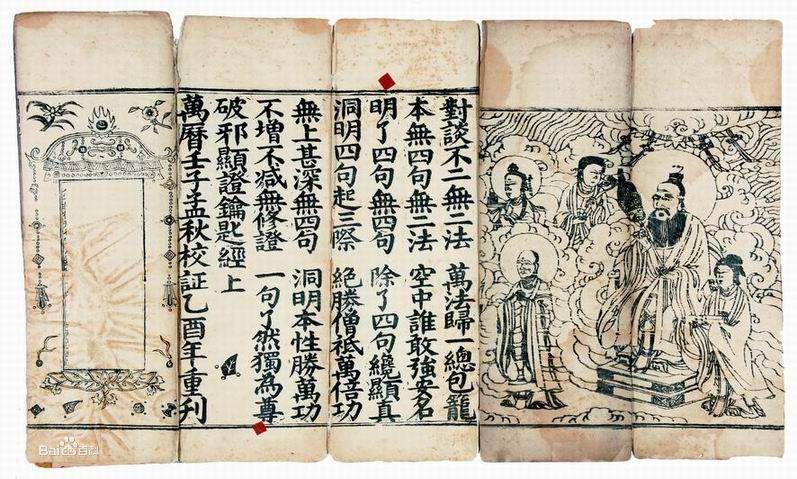 對談不二無二法 萬法歸一總包籠
本無四句無二法 空中誰敢強安名
明了四句無四句 除了四句纔顯真
洞明四句起三際 絕勝僧祇萬倍功
無上甚深無四句 洞明本性勝萬功
不增不減無修證 一句了然獨為尊
破邪顯證鑰匙經上
萬曆壬子孟秋校証乙酉年重刋
Baidu百科